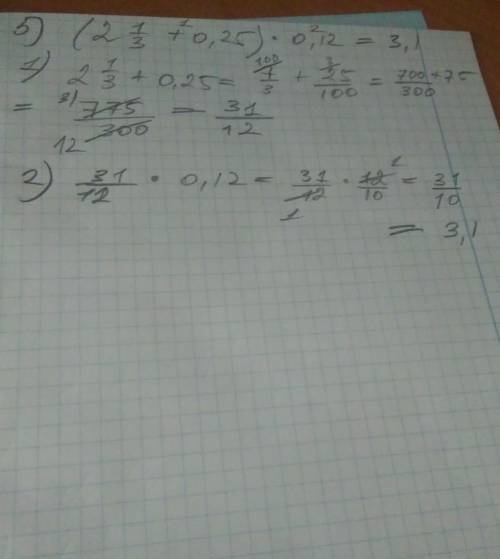 5) (2 1/3 +¹ 0,25) ·² 0,12 = 3,1
1) 2 1/3 + 0,25 = 7/3 ¹⁰⁰ + 25/100 ³ = 700+75/300
= 775/300 ³¹ 12 = 31/12
2) 31/12 · 0,12 = 31/12 1 · 12/10 ¹ = 31/10
= 3,1